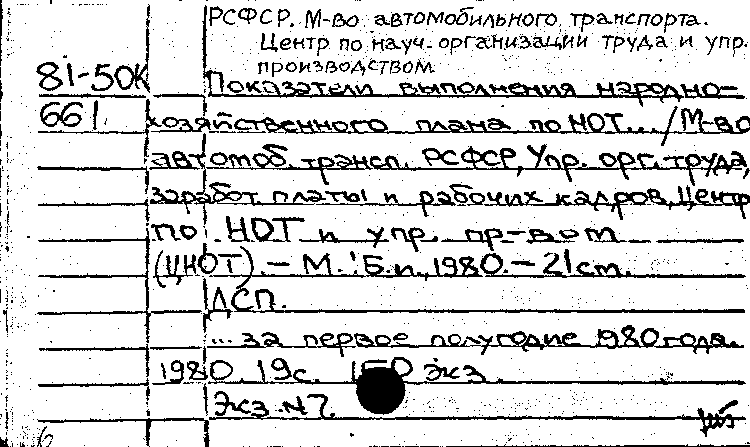 РСФСР. М-во автомобильного транспорта.
Центр по науч. организации труда и упр.
производством
81-50К Показатели выполнения народно-
661. хозяйственного плана по НОТ.../М-во
автомоб. трансп. РСФСР, Упр. орг. труда,
заработ. платы и рабочих кадров, Центр
по НОТ и упр. пр-вом
(ЦНОТ). – М.: Б.и., 1980. – 21 см.
ДСП.
...за первое полугодие 1980 года.
1980. 19с. экз.
Экз. №7.